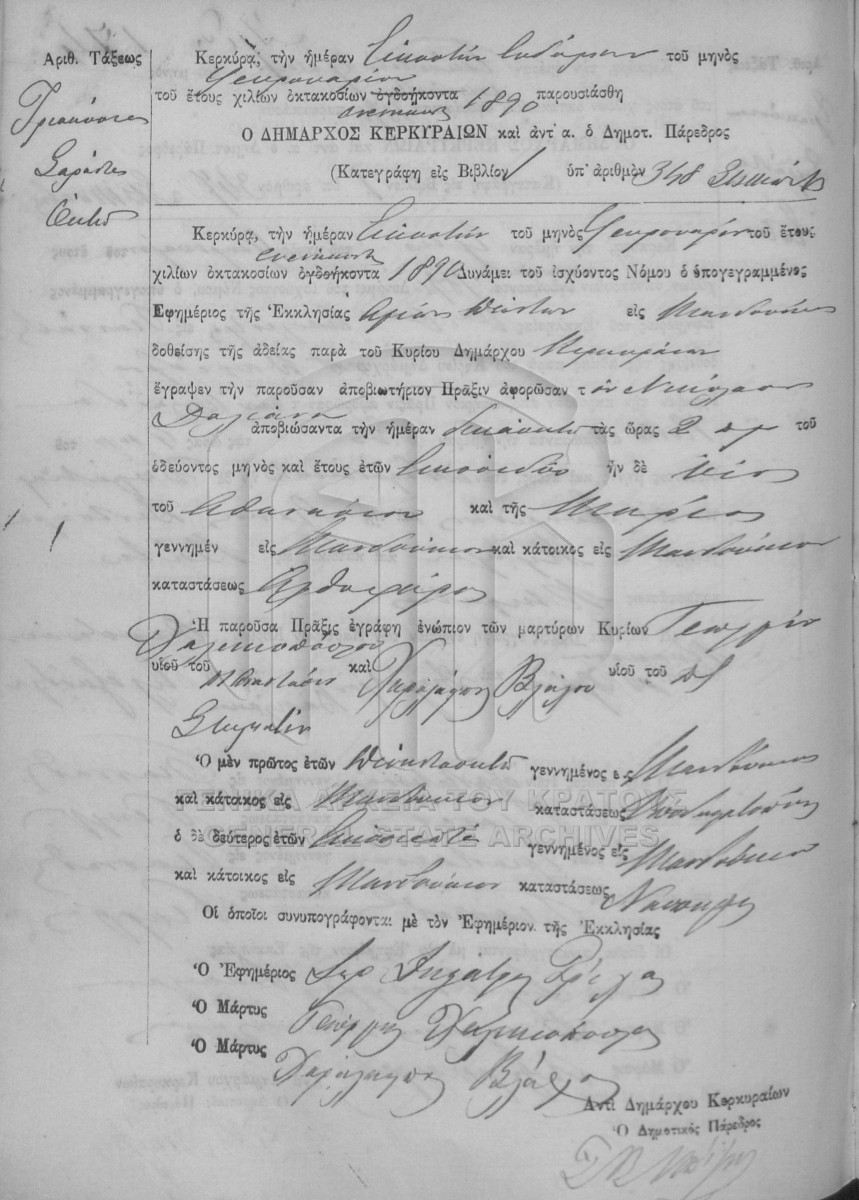 Ἀριθ. Τάξεως
Τριακόσια
Σαράντα
Ὀκτώ
Κερκύρᾳ, τὴν ἡμέραν Εἰκοστὴν ἑβδόμην τοῦ μηνὸς
Φεβρουαρίου
τοῦ ἔτους χιλίων ὀκτακοσίων ὀγδοήκοντα 1890 παρουσιάσθη
ἐνενήκοντα
Ο ΔΗΜΑΡΧΟΣ ΚΕΡΚΥΡΑΙΩΝ καὶ ἀντ' α. ὁ Δημοτ. Πάρεδρος
(Κατεγράφη εἰς Βιβλίον 1 ὑπ' ἀριθμὸν 348
Κερκύρᾳ, τὴν ἡμέραν Εἰκοστὴν τοῦ μηνὸς Φεβρουαρίου τοῦ ἔτους
ἐνενήκοντα
χιλίων ὀκτακοσίων ὀγδοήκοντα 1890 Δυνάμει τοῦ ἰσχύοντος Νόμου ὁ ὑπογεγραμμένος
Ἐφημέριος τῆς Ἐκκλησίας Ἁγίων Πάντων εἰς Μανδούκιον
δοθείσης τῆς ἀδείας παρὰ τοῦ Κυρίου Δημάρχου Κερκυραίων
ἔγραψεν τὴν παροῦσαν ἀποβιωτήριον Πρᾶξιν ἀφορῶσαν τ ὸν Νικόλαον
ἀποβιώσαντα τὴν ἡμέραν τὰς ὥρας 2 π μ τοῦ
ὁδεύοντος μηνὸς καὶ ἔτους ἐτῶν ἦν δὲ υἱὸς
τοῦ Ἀθανασίου καὶ τῆς Μαρίας
γεννημέν εἰς Μανδούκιον καὶ κάτοικος εἰς Μανδούκιον
καταστάσεως Ἀχθοφόρος
Ἡ παροῦσα Πρᾶξις ἐγράφη ἐνώπιον τῶν μαρτύρων Κυρίων Γεωργίου
Χαλικιοπούλου
υἱοῦ τοῦ Ἀναστασίου καὶ Χαραλάμπους Βλάχου υἱοῦ τοῦ
Σταματίου
Ὁ μὲν πρῶτος ἐτῶν γεννημένος εἰς Μανδούκιον
καὶ κάτοικος εἰς Μανδούκιον καταστάσεως Ὑποδηματοποιός
ὁ δὲ δεύτερος ἐτῶν γεννημένος εἰς Μανδούκιον
καὶ κάτοικος εἰς Μανδούκιον καταστάσεως Ναυπηγός
Οἱ ὁποῖοι συνυπογράφονται μὲ τὸν Ἐφημέριον τῆς Ἐκκλησίας
Ὁ Ἐφημέριος
Ὁ Μάρτυς Γεώργιος Χαλικιόπουλος
Ὁ Μάρτυς Χαράλαμπος Βλάχος
Ἀντὶ Δημάρχου Κερκυραίων
Ὁ Δημοτικὸς Πάρεδρος
ΓΕΝΙΚΑ ΑΡΧΕΙΑ ΤΟΥ ΚΡΑΤΟΥΣ
GENERAL STATE ARCHIVES